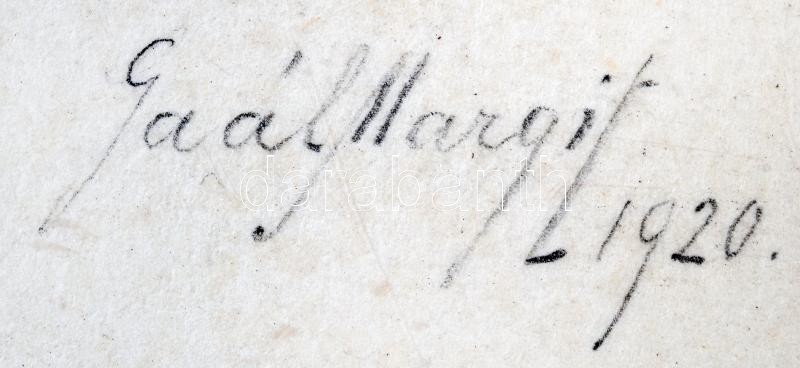 Gaál Margit
1920.
darabanth